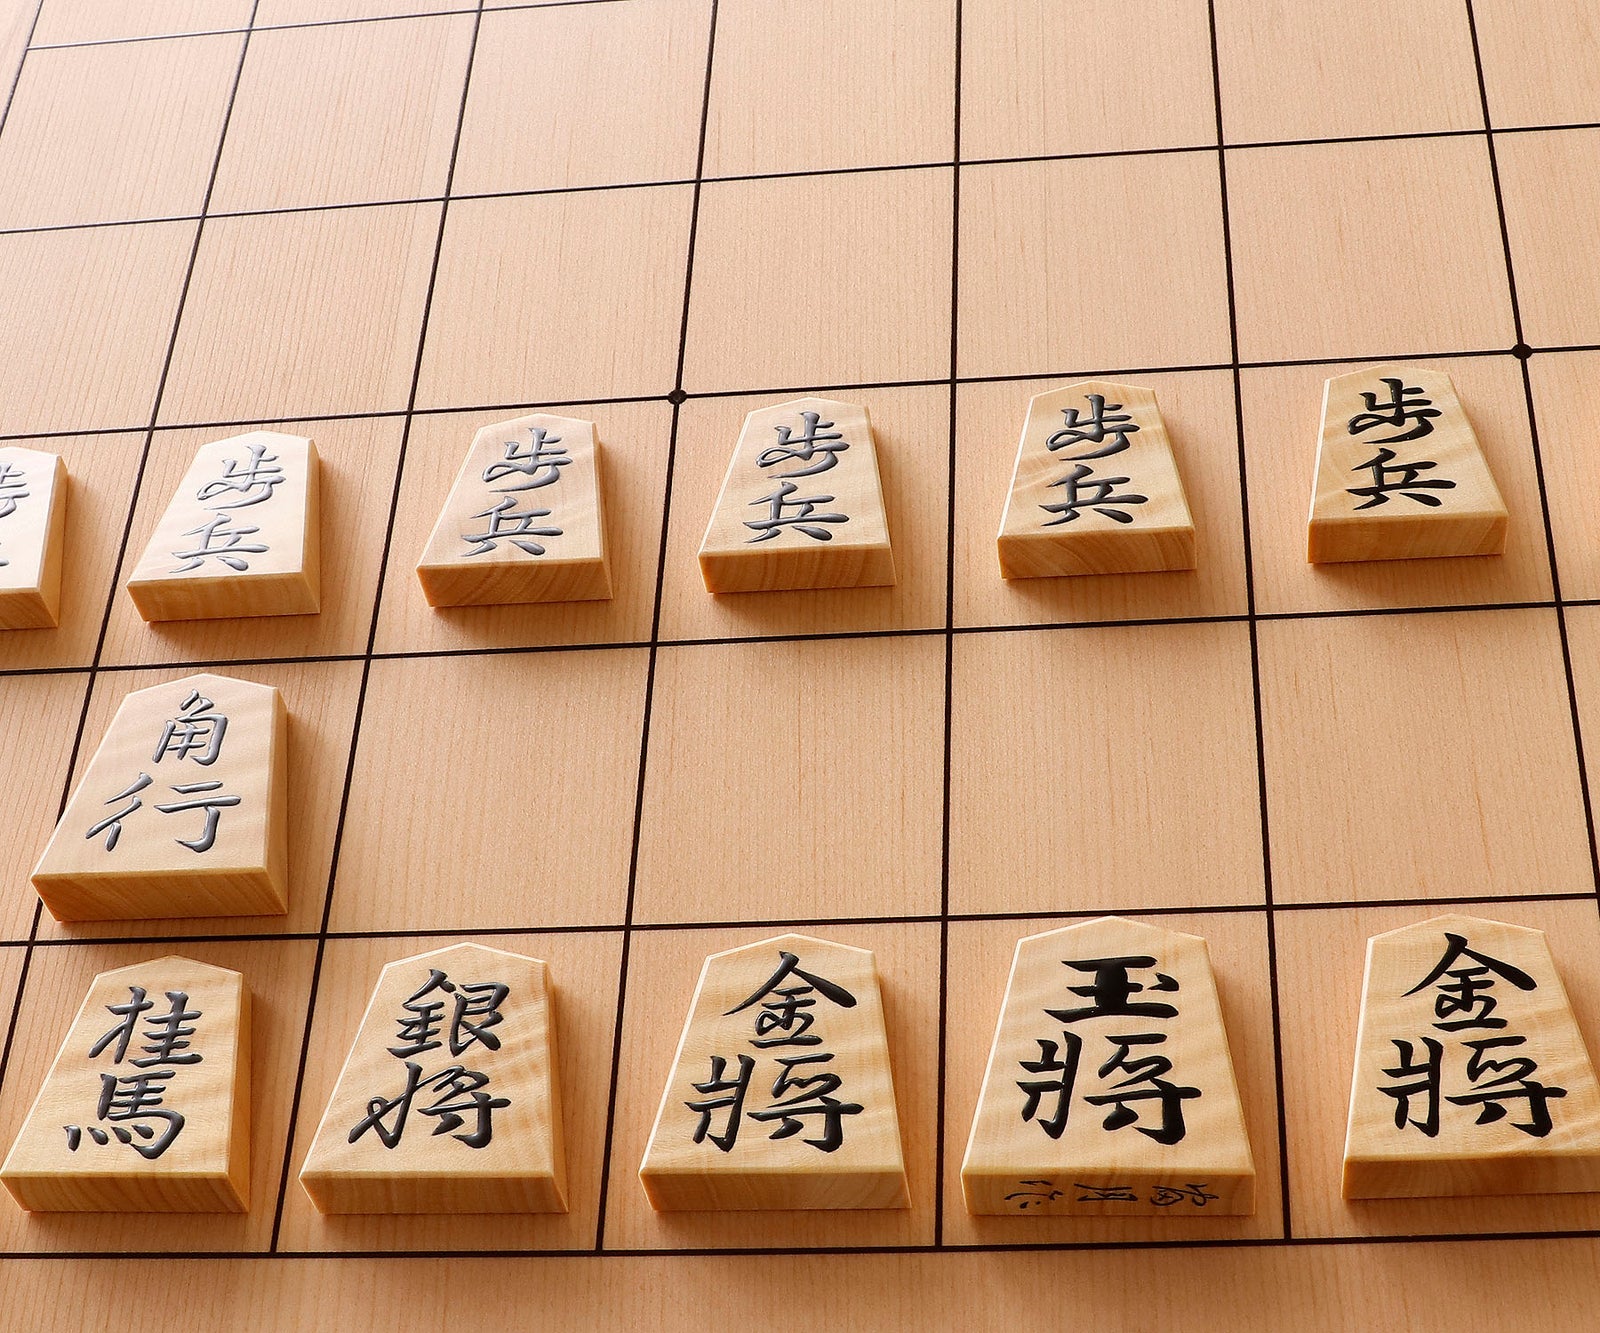 歩兵
歩兵
歩兵
歩兵
歩兵
角行
桂馬
銀将
金将
玉将
金将